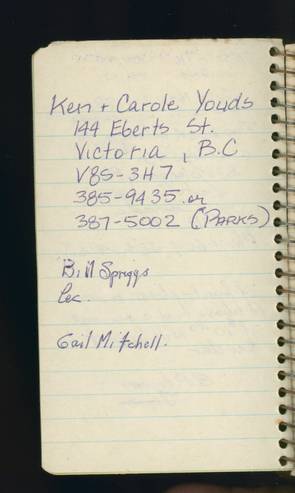 Ken + Carole Youds
144 Eberts St.
Victoria, B.C
V8S-3H7
385-9435 or
387-5002 (PARKS)
Bill Spriggs
Gail Mitchell.